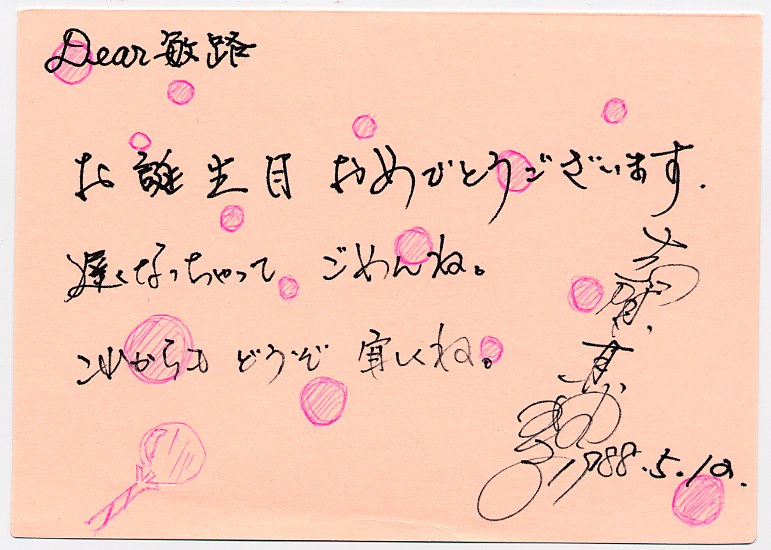 Dear 敏路
お誕生日おめでとうございます.
遅くなっちゃって ごめんね。
これからも どうぞ 宜しくね。
1988.5.12.